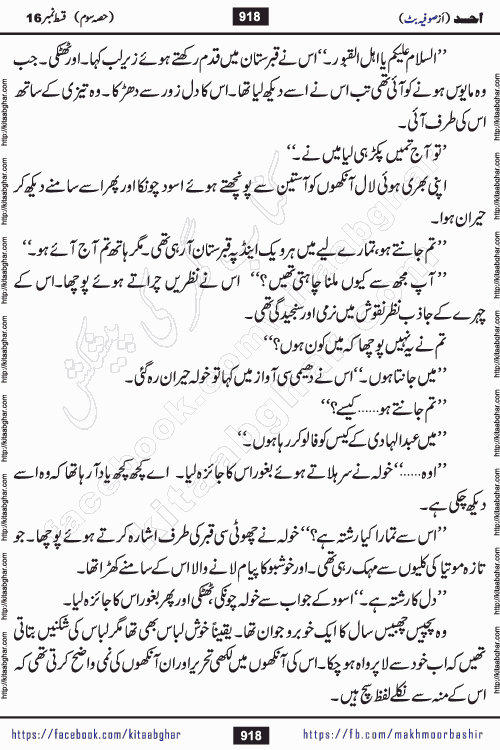 احد (از صوفیہ بٹ) 918 (حصہ سوم) قسط نمبر 16
’’السلام علیکم یا اہل القبور۔‘‘ اس نے قبرستان میں قدم رکھتے ہوئے زیر لب کہا۔ اور ٹھٹکی۔ جب
وہ مایوس ہونے کو آئی تھی تب اس نے اسے دیکھ لیا تھا۔ اس کا دل زور سے دھڑکا۔ وہ تیزی کے ساتھ
اس کی طرف آئی۔
’’تو آج تمہیں پکڑ ہی لیا میں نے۔‘‘
اپنی بھری ہوئی لال آنکھوں کو آستین سے پونچھتے ہوئے اسود چونکا اور پھر اسے سامنے دیکھ کر
حیران ہوا۔
’’تم جانتے ہو، تمہارے لیے میں ہر ویک اینڈ پہ قبرستان آ رہی تھی۔ مگر ہاتھ تم آج آئے ہو۔‘‘
’’آپ مجھ سے کیوں ملنا چاہتی تھیں؟‘‘ اس نے نظریں چراتے ہوئے پوچھا۔ اس کے
چہرے کے جاذب نظر نقوش میں نرمی اور سنجیدگی تھی۔
تم نے یہ نہیں پوچھا کہ میں کون ہوں؟‘‘
’’میں جانتا ہوں۔‘‘ اس نے دھیمی سی آواز میں کہا تو خولہ حیران رہ گئی۔
’’تم جانتے ہو...... کیسے؟‘‘
’’میں عبدالہادی کے کیس کو فالو کر رہا ہوں۔‘‘
’’اوہ......‘‘ خولہ نے سر ہلاتے ہوئے بغور اس کا جائزہ لیا۔ اے کچھ کچھ یاد آ رہا تھا کہ وہ اسے
دیکھ چکی ہے۔
’’اس سے تمہارا کیا رشتہ ہے؟‘‘ خولہ نے چھوٹی سی قبر کی طرف اشارہ کرتے ہوئے پوچھا۔ جو
تازہ موتیا کی کلیوں سے مہک رہی تھی۔ اور خوشبو کا پیام لانے والا اس کے سامنے کھڑا تھا۔
’’دل کا رشتہ ہے۔‘‘ اسود کے جواب سے خولہ چونکی، ٹھٹکی اور پھر بغور اس کا جائزہ لیا۔
وہ پچیس چھبیس سال کا ایک خوبرو جوان تھا۔ یقیناً خوش لباس بھی تھا مگر لباس کی شکنیں بتاتی
تھیں کہ اب خود سے لا پرواہ ہو چکا۔ اس کی آنکھوں میں لکھی تحریر اور ان آنکھوں کی نمی واضح کرتی تھی کہ
اس کے منہ سے نکلے لفظ سچ ہیں۔
https://facebook.com/kitaabghar 918 https://fb.com/makhmoorbashir
http://kitaabghar.com
کتاب گھر کی پیشکش
facebook.com/kitaabghar
kitaabghar.com